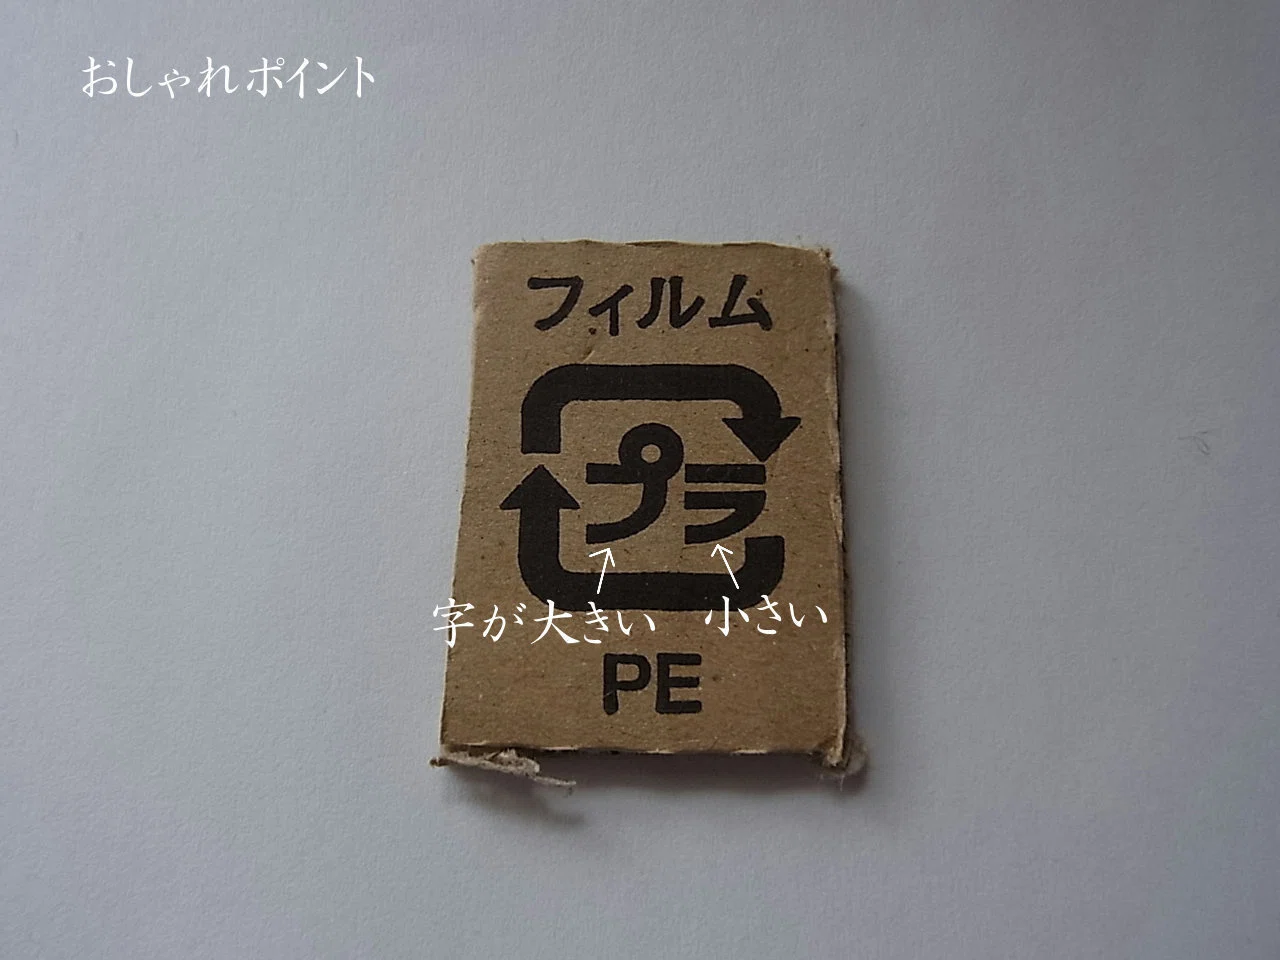 おしゃれポイント
フィルム
プラ
字が大きい 小さい
PE